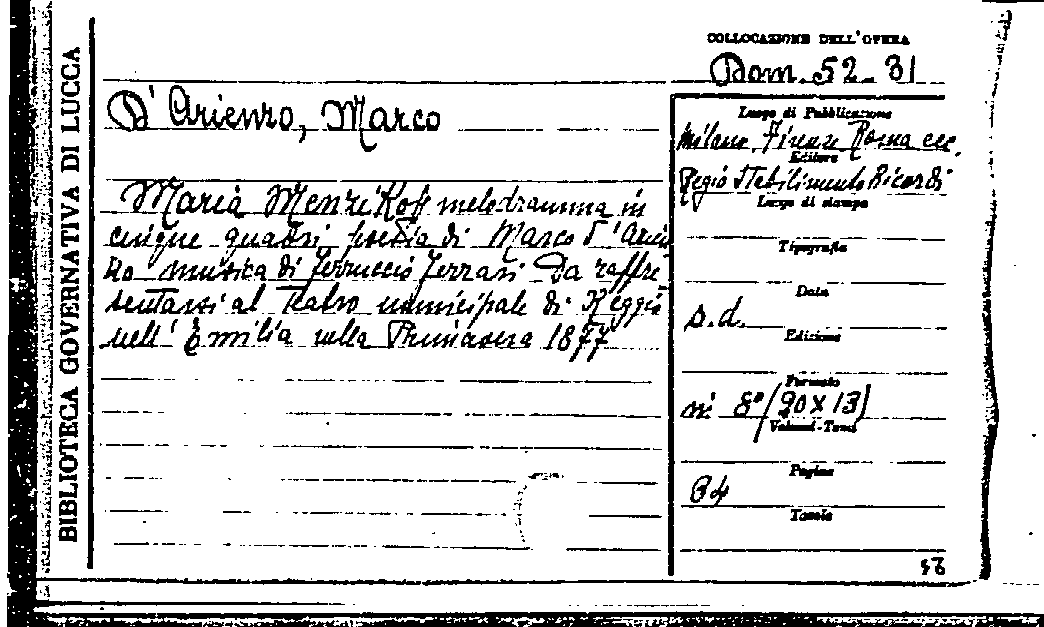 BIBLIOTECA GOVERNATIVA DI LUCCA
COLLOCAZIONE DELL'OPERA
Dom. 52-31
D'Arienzo, Marco
Maria MenziKoff melodramma in
cinque quadri, poesia di Marco D'Arien
zo musica di Ferruccio Ferrari Da raffre
sentarsi al Teatro municipale di Reggio
nell'Emilia nella Primavera 1877
Luogo di Pubblicazione
Milano, Firenze Roma ecc.
Editore
Regio Stabilimento Ricordi
Luogo di stampa
Tipografia
Data
s.d.
Edizione
Formato
in 8° (20 x 13)
Volumi-Tomi
Pagine
Tavole